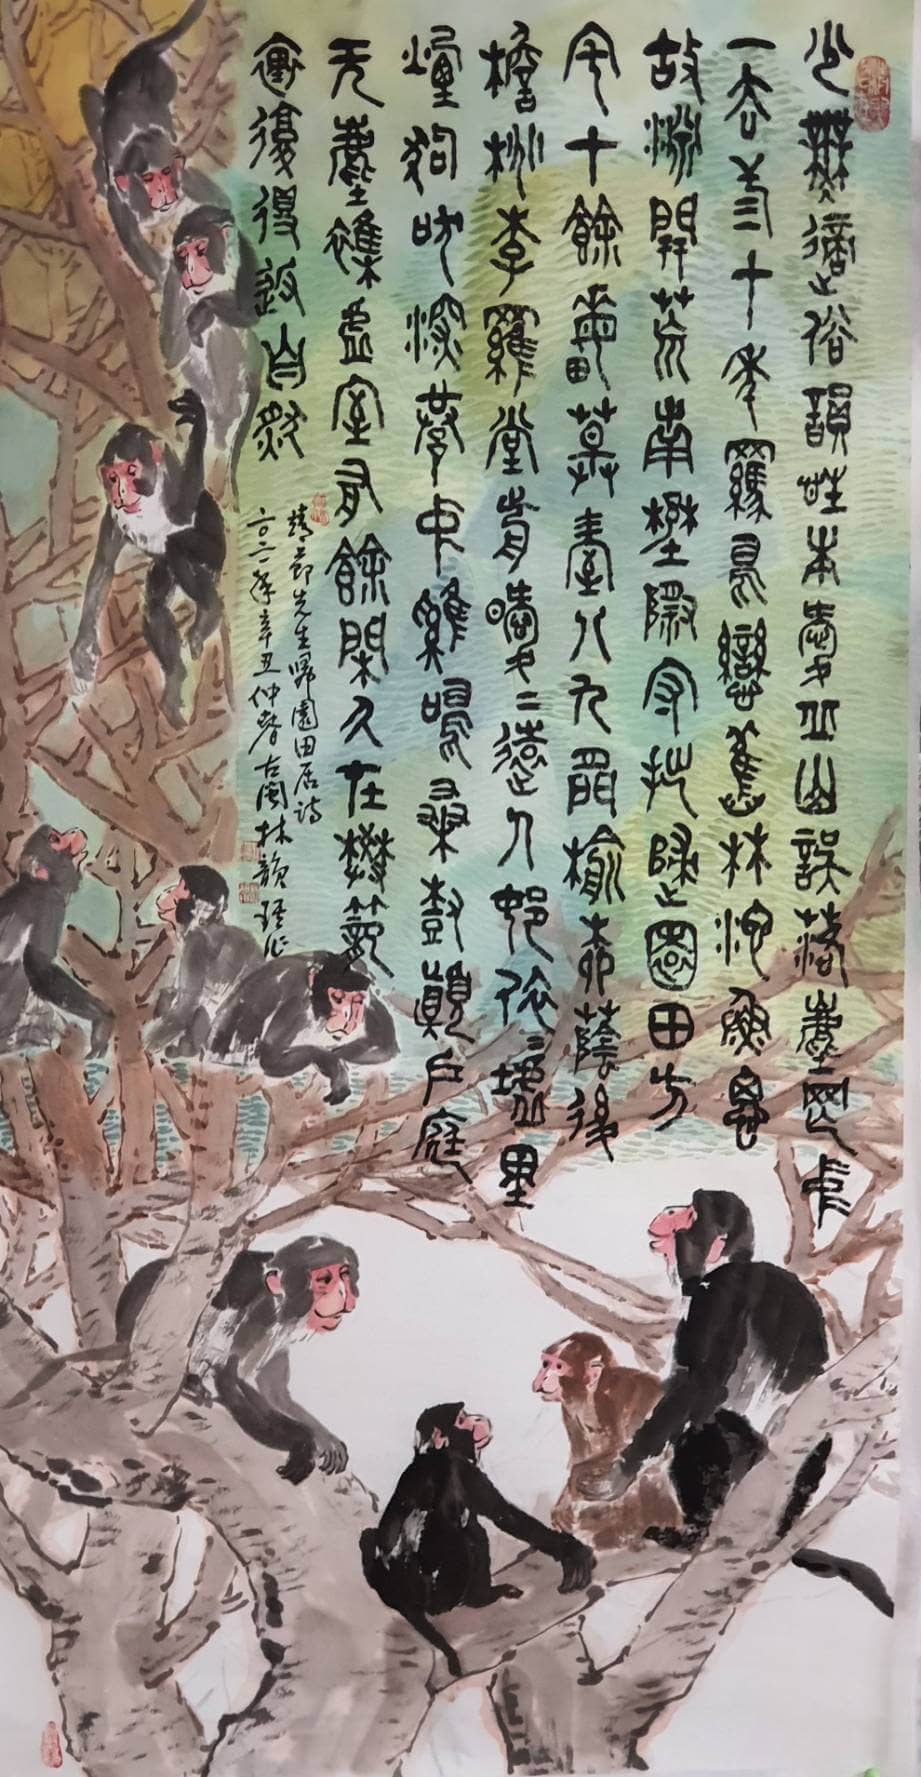 少無適俗韻性本愛丘山誤落塵网中
一去三十年羈鳥戀舊林池魚思
故淵開荒南埜際守拙歸園田方
宅十餘畝草屋八九間榆柳蔭後
檐桃李羅堂前曖〻遠人邨依〻墟里
煙狗吠深巷中雞鳴桑樹顛戶庭
无塵雜虛室有餘閑久在樊籠
裏復得返自然
靖節先生歸園田居詩
二〇二一年辛丑仲春古閩林韻作